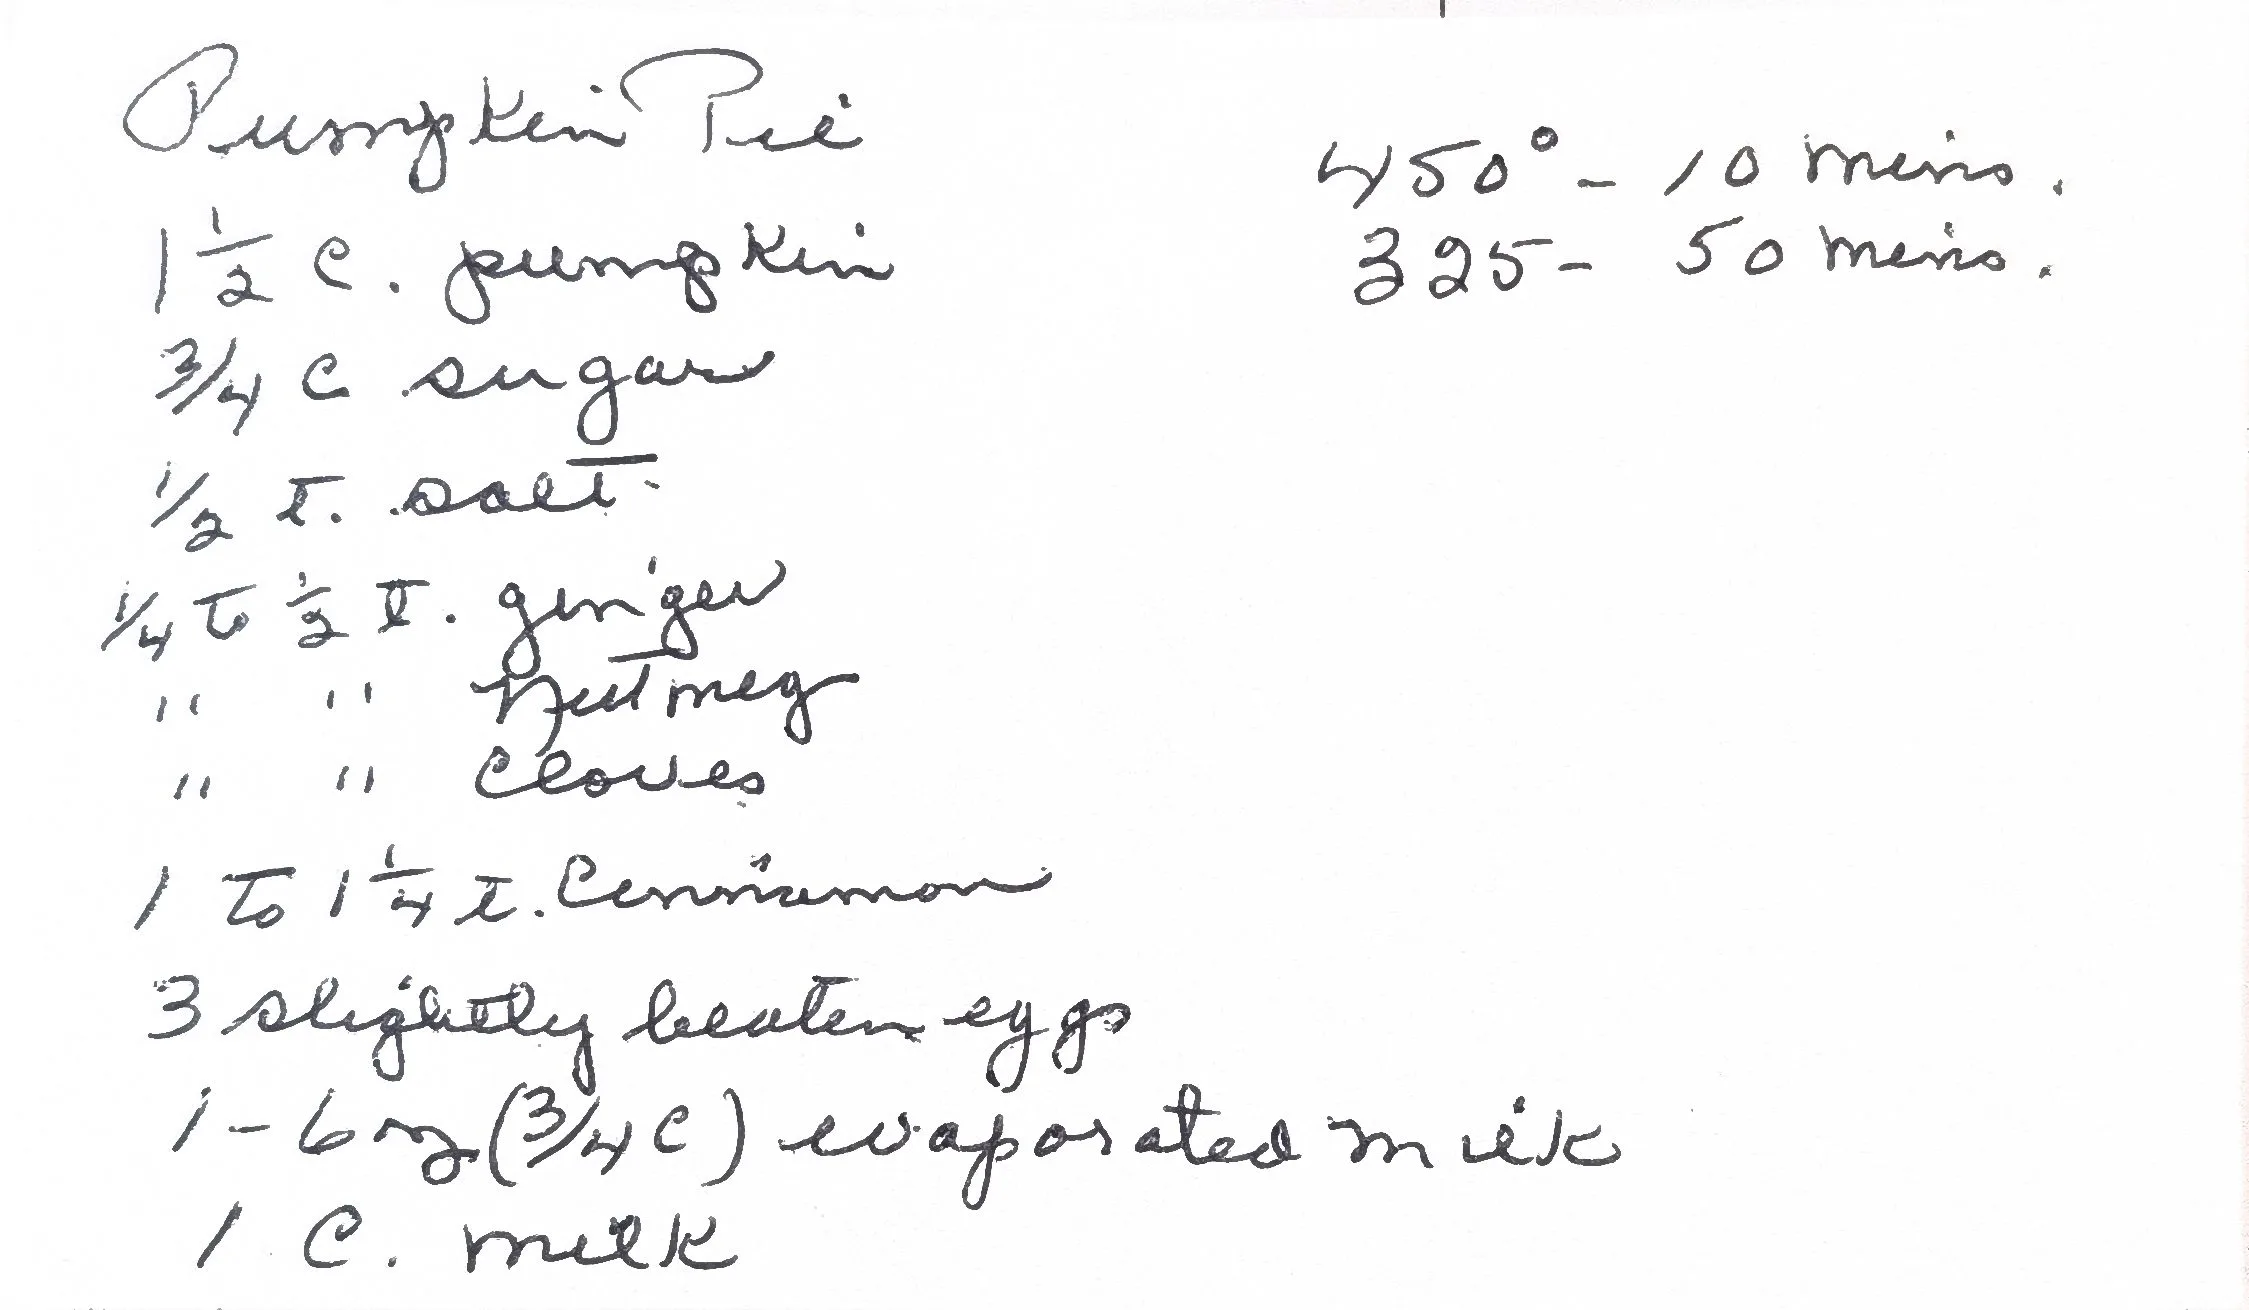 Pumpkin Pie
450° - 10 mins.
325 - 50 mins.
1 1/2 c. pumpkin
3/4 c sugar
1/2 t. salt
1/4 to 1/2 t. ginger
" " Nutmeg
" " Cloves
1 to 1 1/4 t. Cinnamon
3 slightly beaten eggs
1 - 6 oz (3/4 c) evaporated milk
1 C. milk